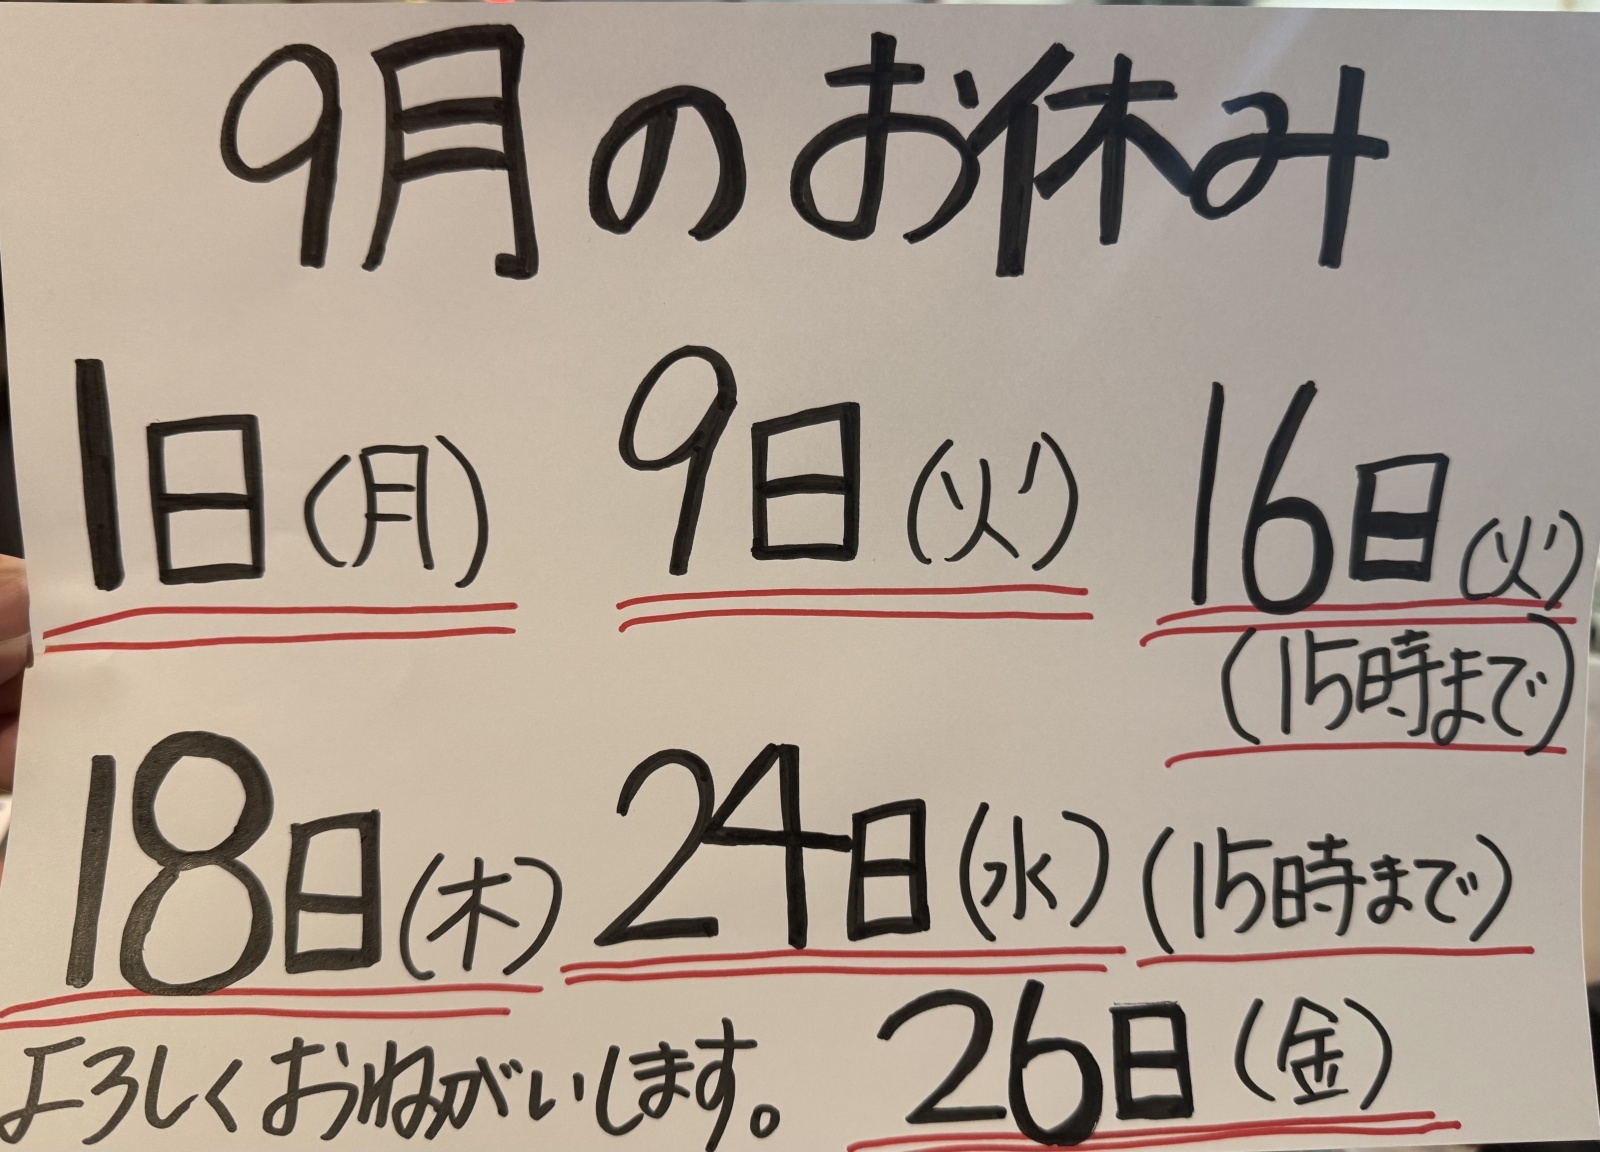 9月のお休み
1日(月) 9日(火) 16日(火)
(15時まで)
18日(木) 24日(水) (15時まで)
26日(金)
よろしくおねがいします。